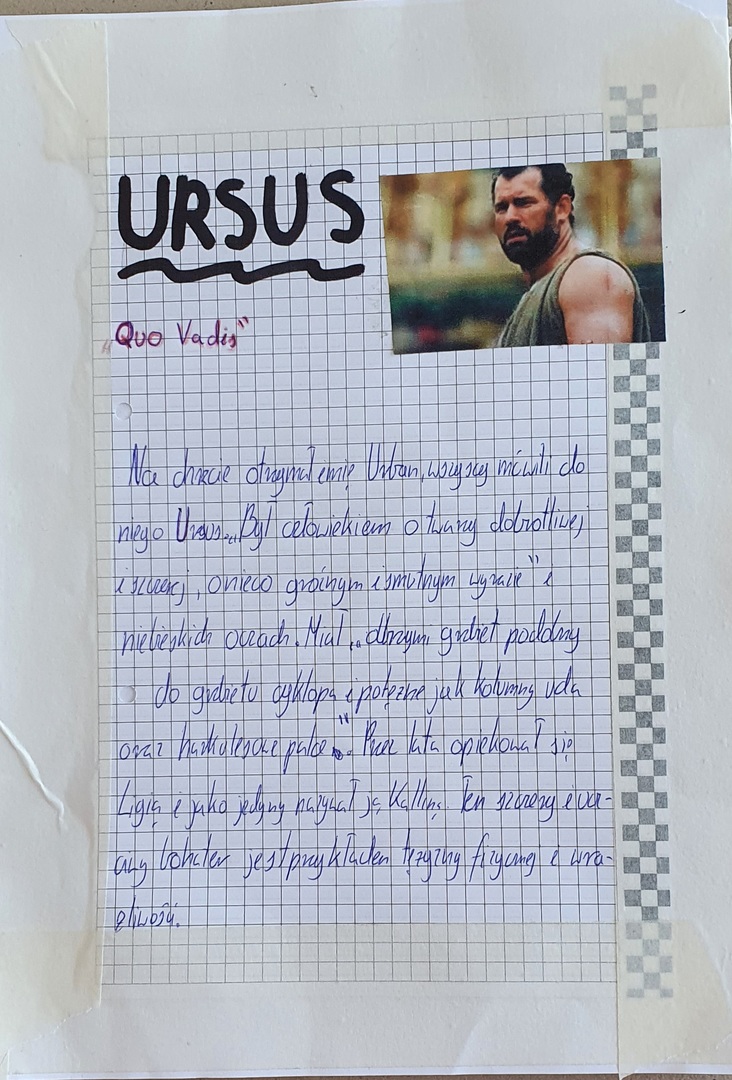 URSUS
„Quo Vadis"
Na chrzcie otrzymał imię Urban, wszyscy mówili do
niego Ursus. „Był człowiekiem o twarzy dobrotliwej
i szczerej, o nieco groźnym i smutnym wyrazie" i
niebieskich oczach. Miał „olbrzymi grzbiet podobny
do grzbietu cyklopa i potężne jak kolumny uda
oraz herkulesowe palce". Przez lata opiekował się
Ligią i jako jedyny nazywał ją Kalliną. Ten szczery i
bohater jest przykładem tężyzny fizycznej i wra-
żliwości.